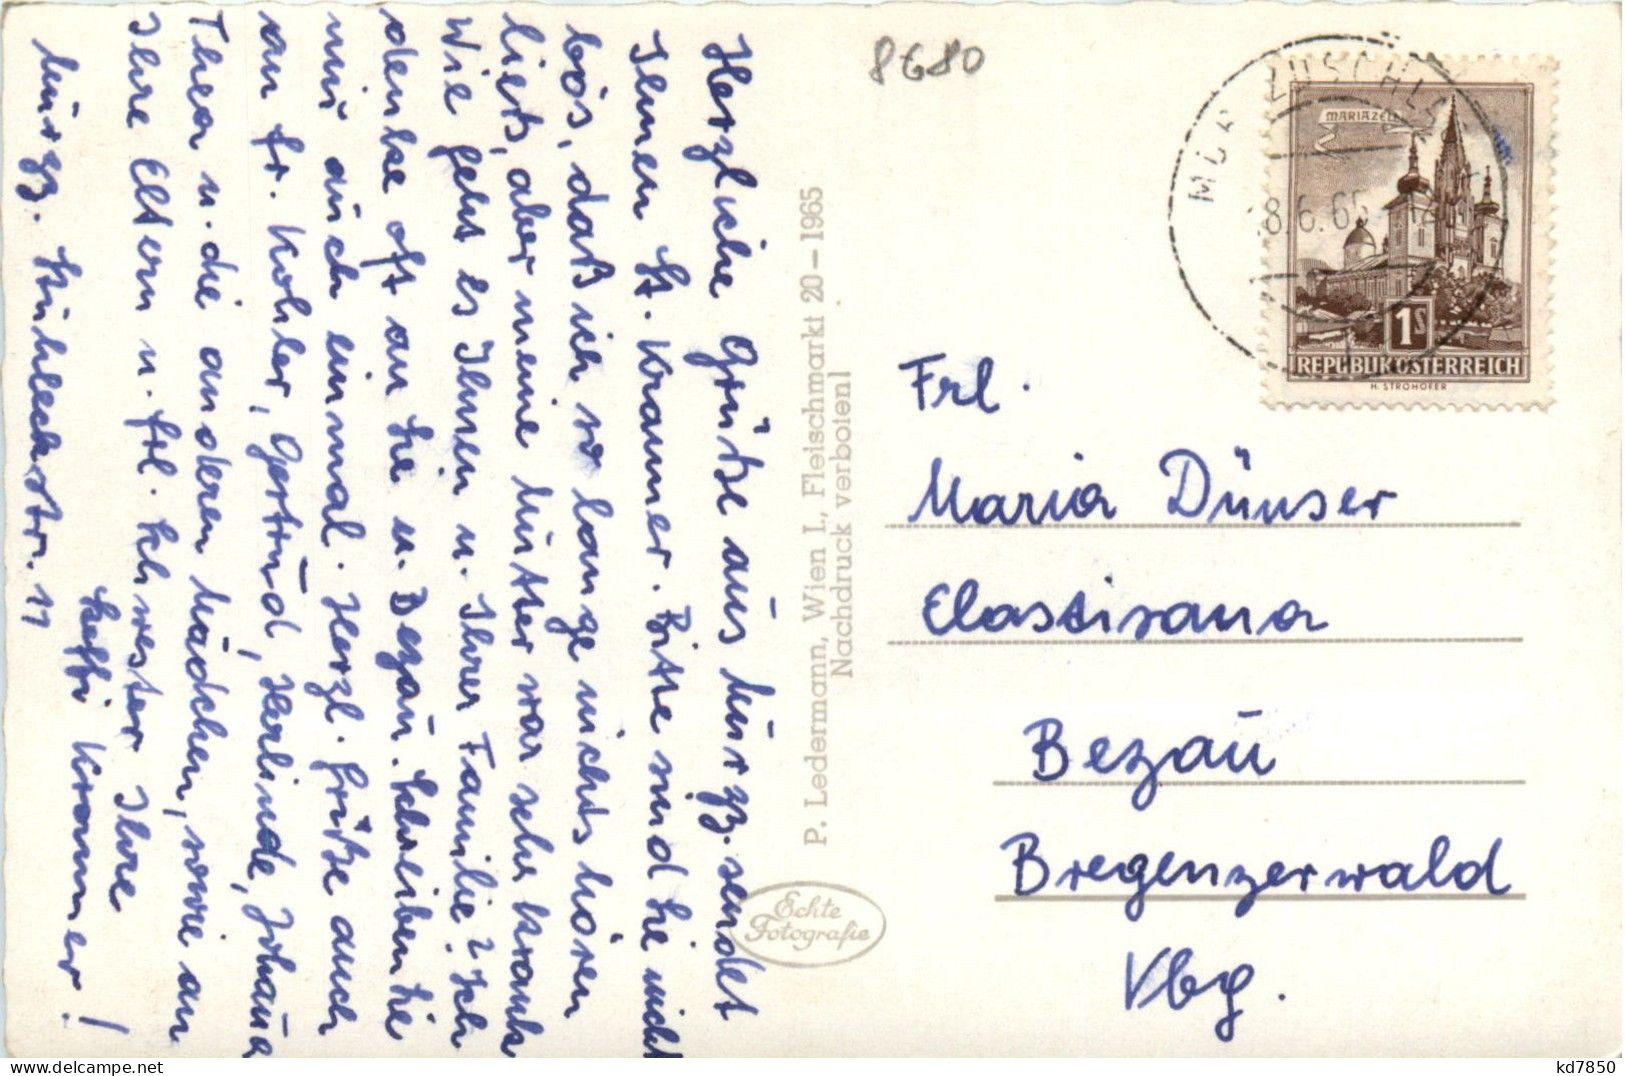 8680
Herzliche Grüße aus Mürzz. sendet
Ihnen St. Krammer. Bitte sind Sie nicht
bös, daß ich so lange nichts hören
ließ, aber meine Mutter war sehr krank
Wie geht es Ihnen u. Ihrer Familie? Ich
denke oft an Sie u. Bezau. Schreiben Sie
mir auch einmal. Herzl. Grüße auch
an Fr. Kohler, Gertrud, Herlinde, Johanna
Thea u. die anderen Mädchen, sowie an
Ihre Eltern u. Frl. Schwester Ihre
Steffi Krammer!
Mürzz. Stuhleckstr. 11
P. Ledermann, Wien I., Fleischmarkt 20 – 1965
Nachdruck verboten!
Echte
Fotografie
MÜRZZUSCHLAG
8.6.65
MARIAZELL
1S
REPUBLIK ÖSTERREICH
H. STROHOFER
Frl.
Maria Dünser
Elastisana
Bezau
Bregenzerwald
Vbg.
kd7850